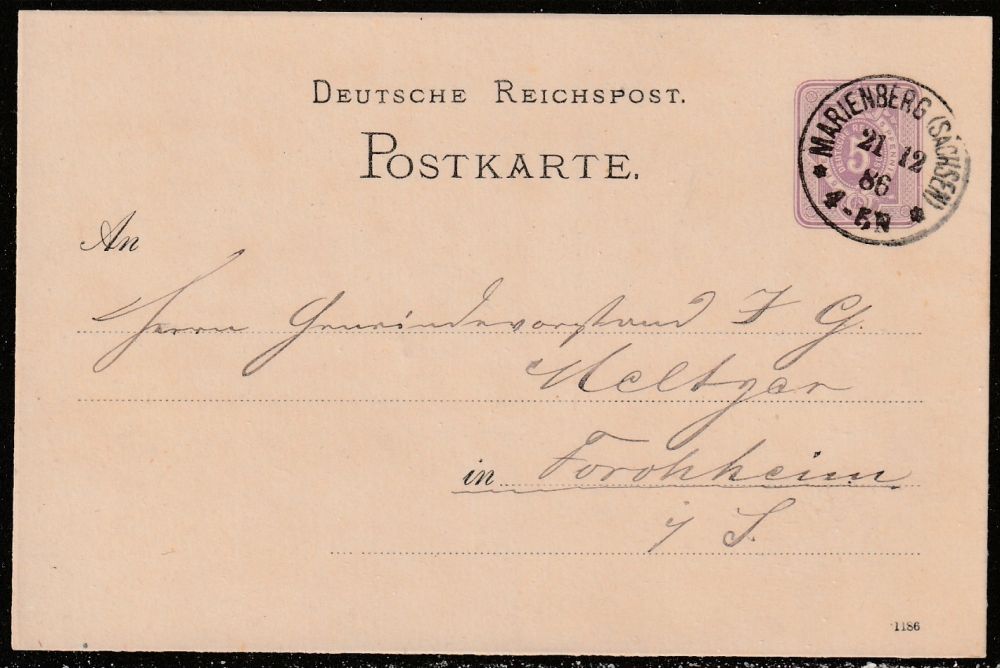 DEUTSCHE REICHSPOST.
POSTKARTE.
MARIENBERG (SACHSEN)
21 12
86
4-5N
5
An
Herrn Gemeindevorstand F G.
in Forchheim
i/ S.
1186